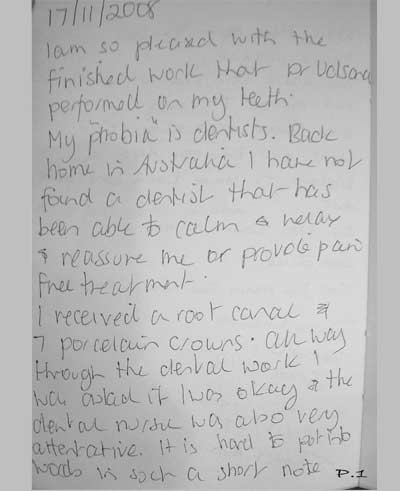 17/11/2008
I am so pleased with the
finished work that Dr Volsana
performed on my teeth.
My "phobia" is dentists. Back
home in Australia I have not
found a dentist that has
been able to calm & relax
& reassure me or provide pain
free treatment.
I received a root canal &
7 porcelain crowns. all way
through the dental work I
was asked if I was okay & the
dental nurse was also very
attentative. It is hard to put into
words in such a short note P.1